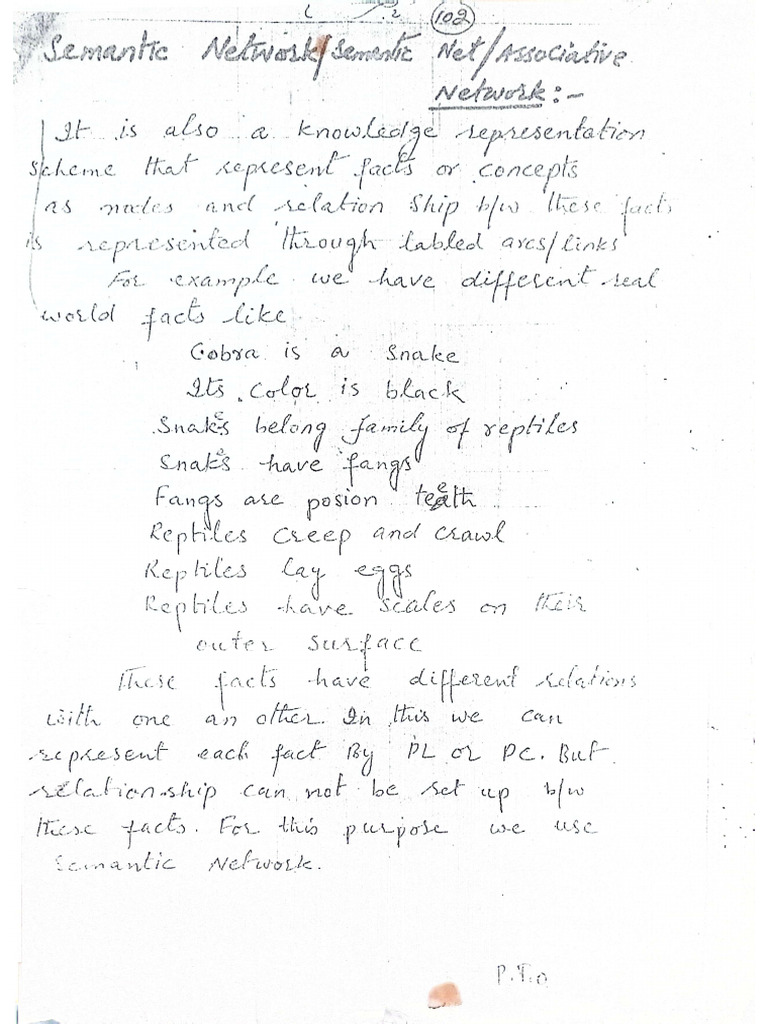 102
Semantic Network/Sementic Net/Associative
Network:-
It is also a knowledge representation
scheme that represent facts or concepts
as nodes and relation ship b/w these facts
is represented through labled arcs/links
For example we have different real
world facts like
Cobra is a snake
Its color is black
Snakes belong family of reptiles
Snakes have fangs
Fangs are posion teeth
Reptiles creep and crawl
Reptiles lay eggs
Reptiles have scales on their
outer surface
These facts have different relations
with one an other. In this we can
represent each fact By PL or PC. But
relationship can not be set up b/w
these facts. For this purpose we use
Semantic Network.
P.T.O